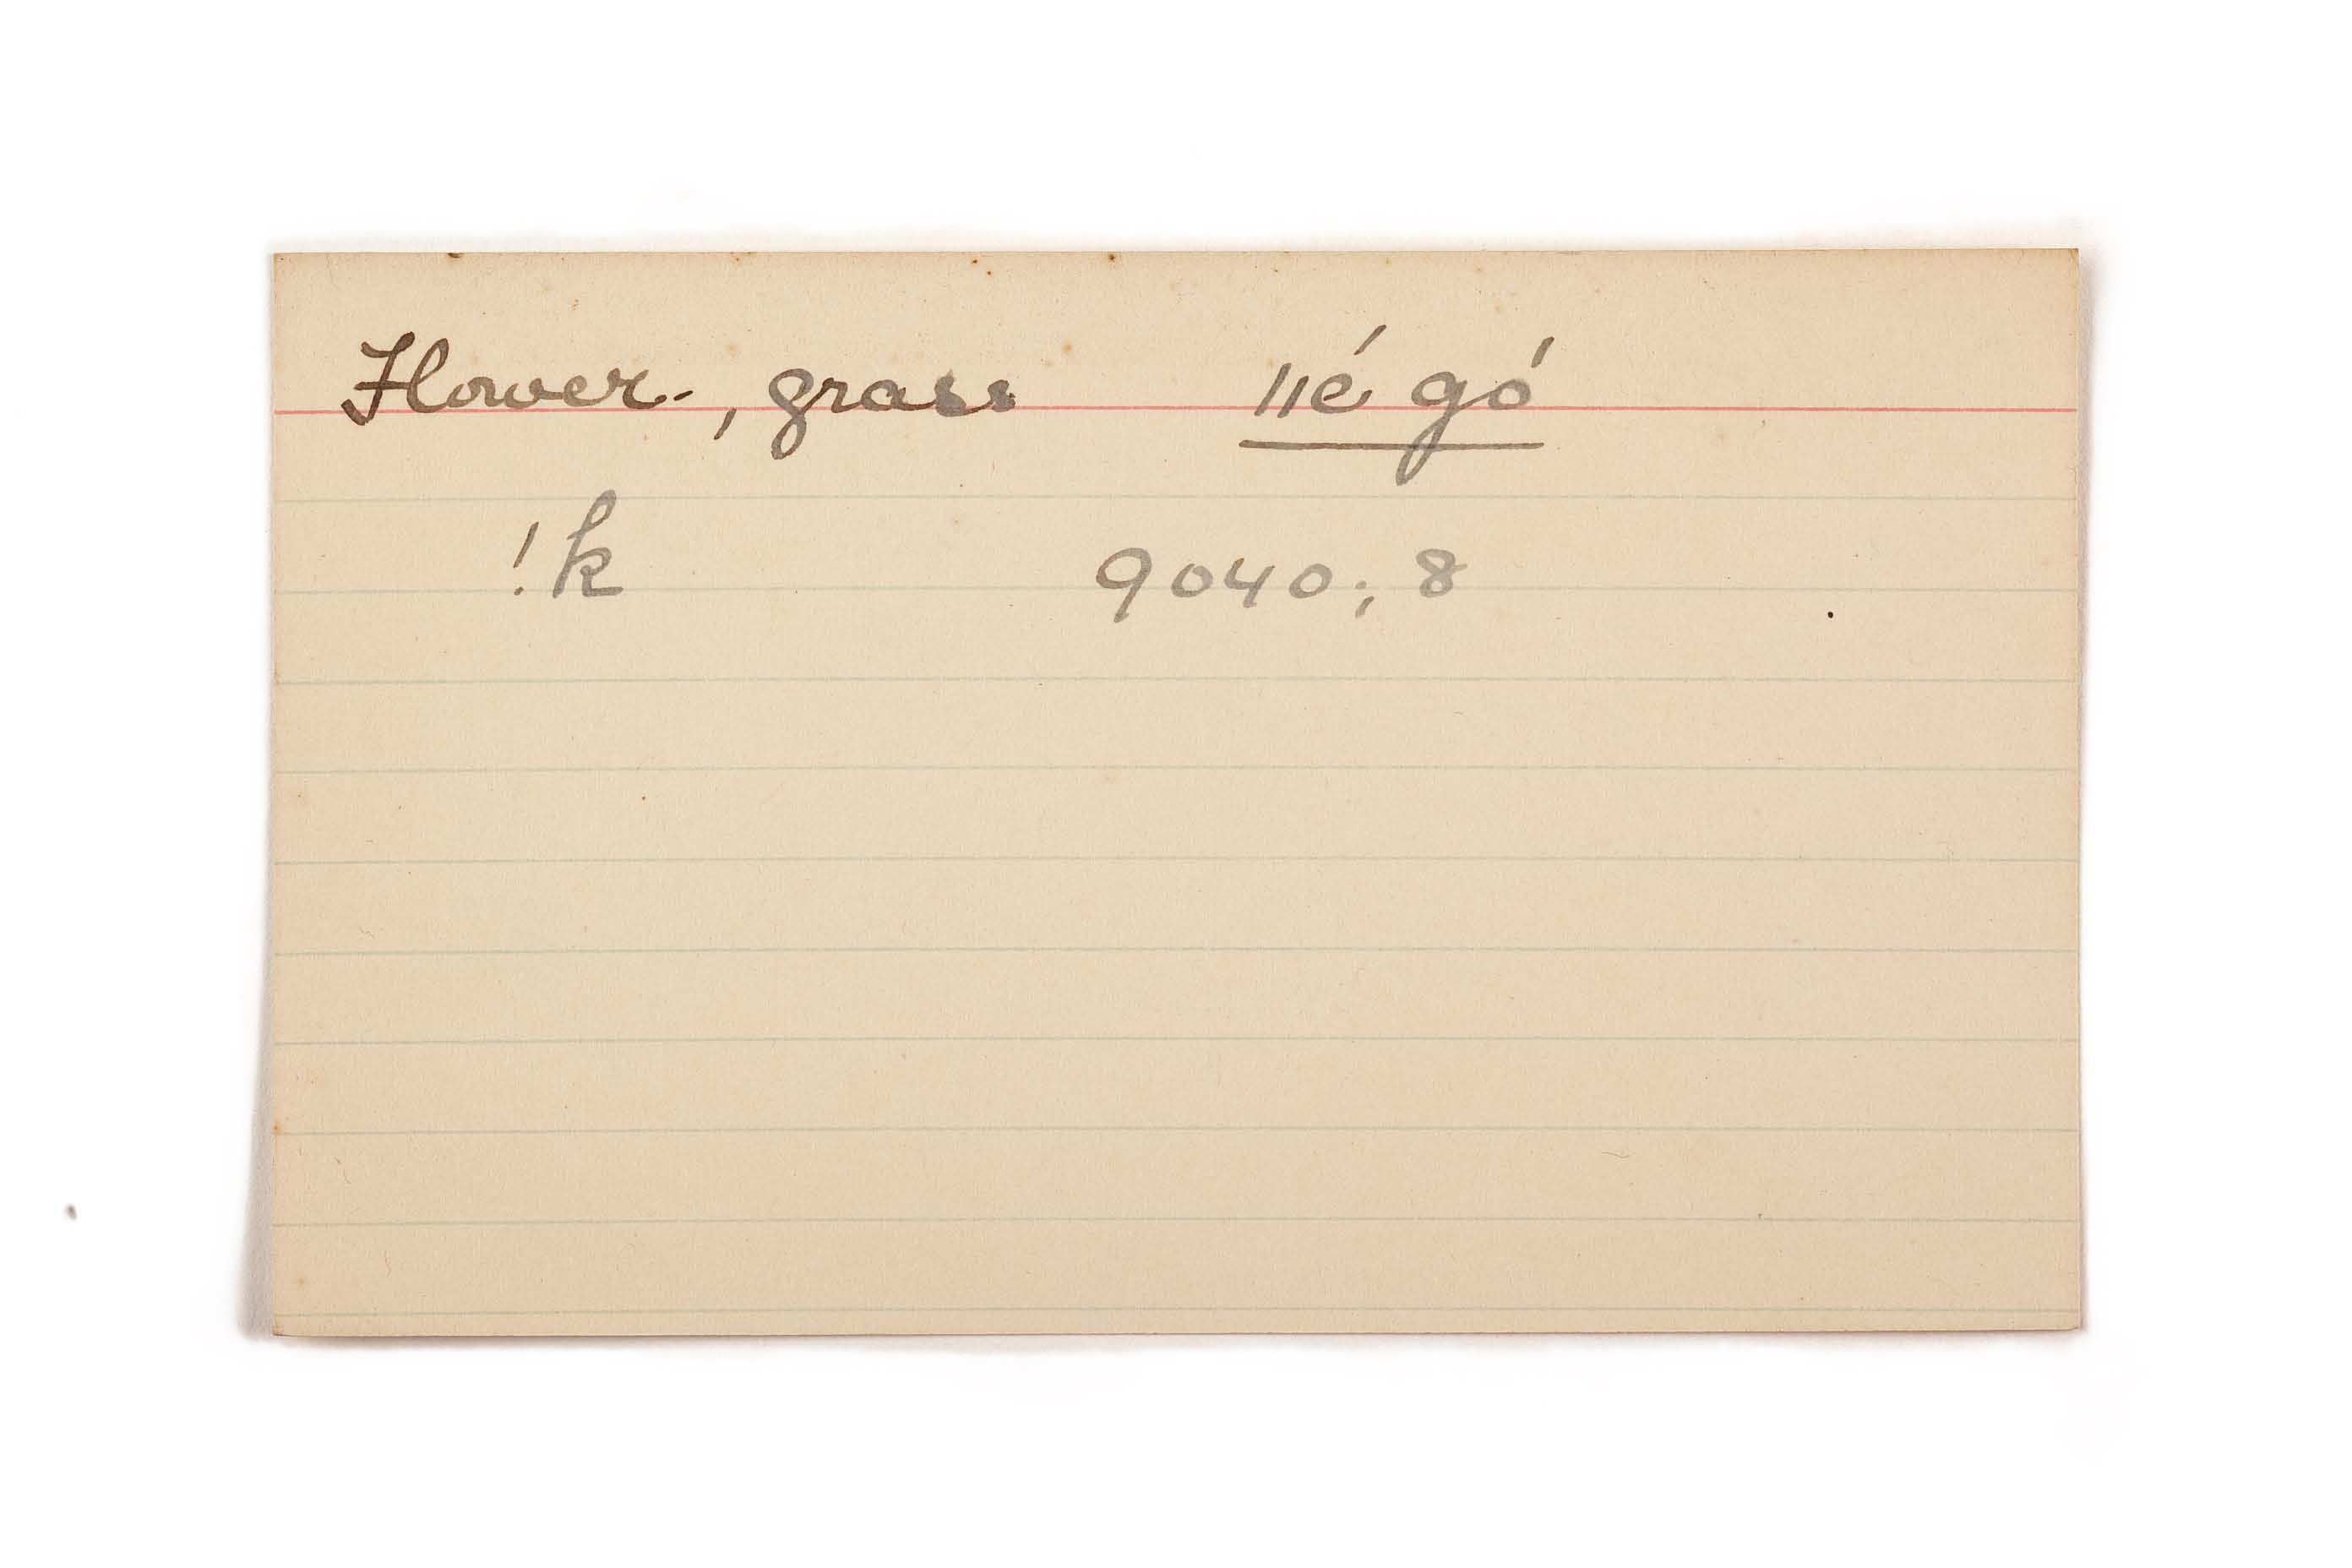 Flower, grass ǁé gó
!k 9040; 8